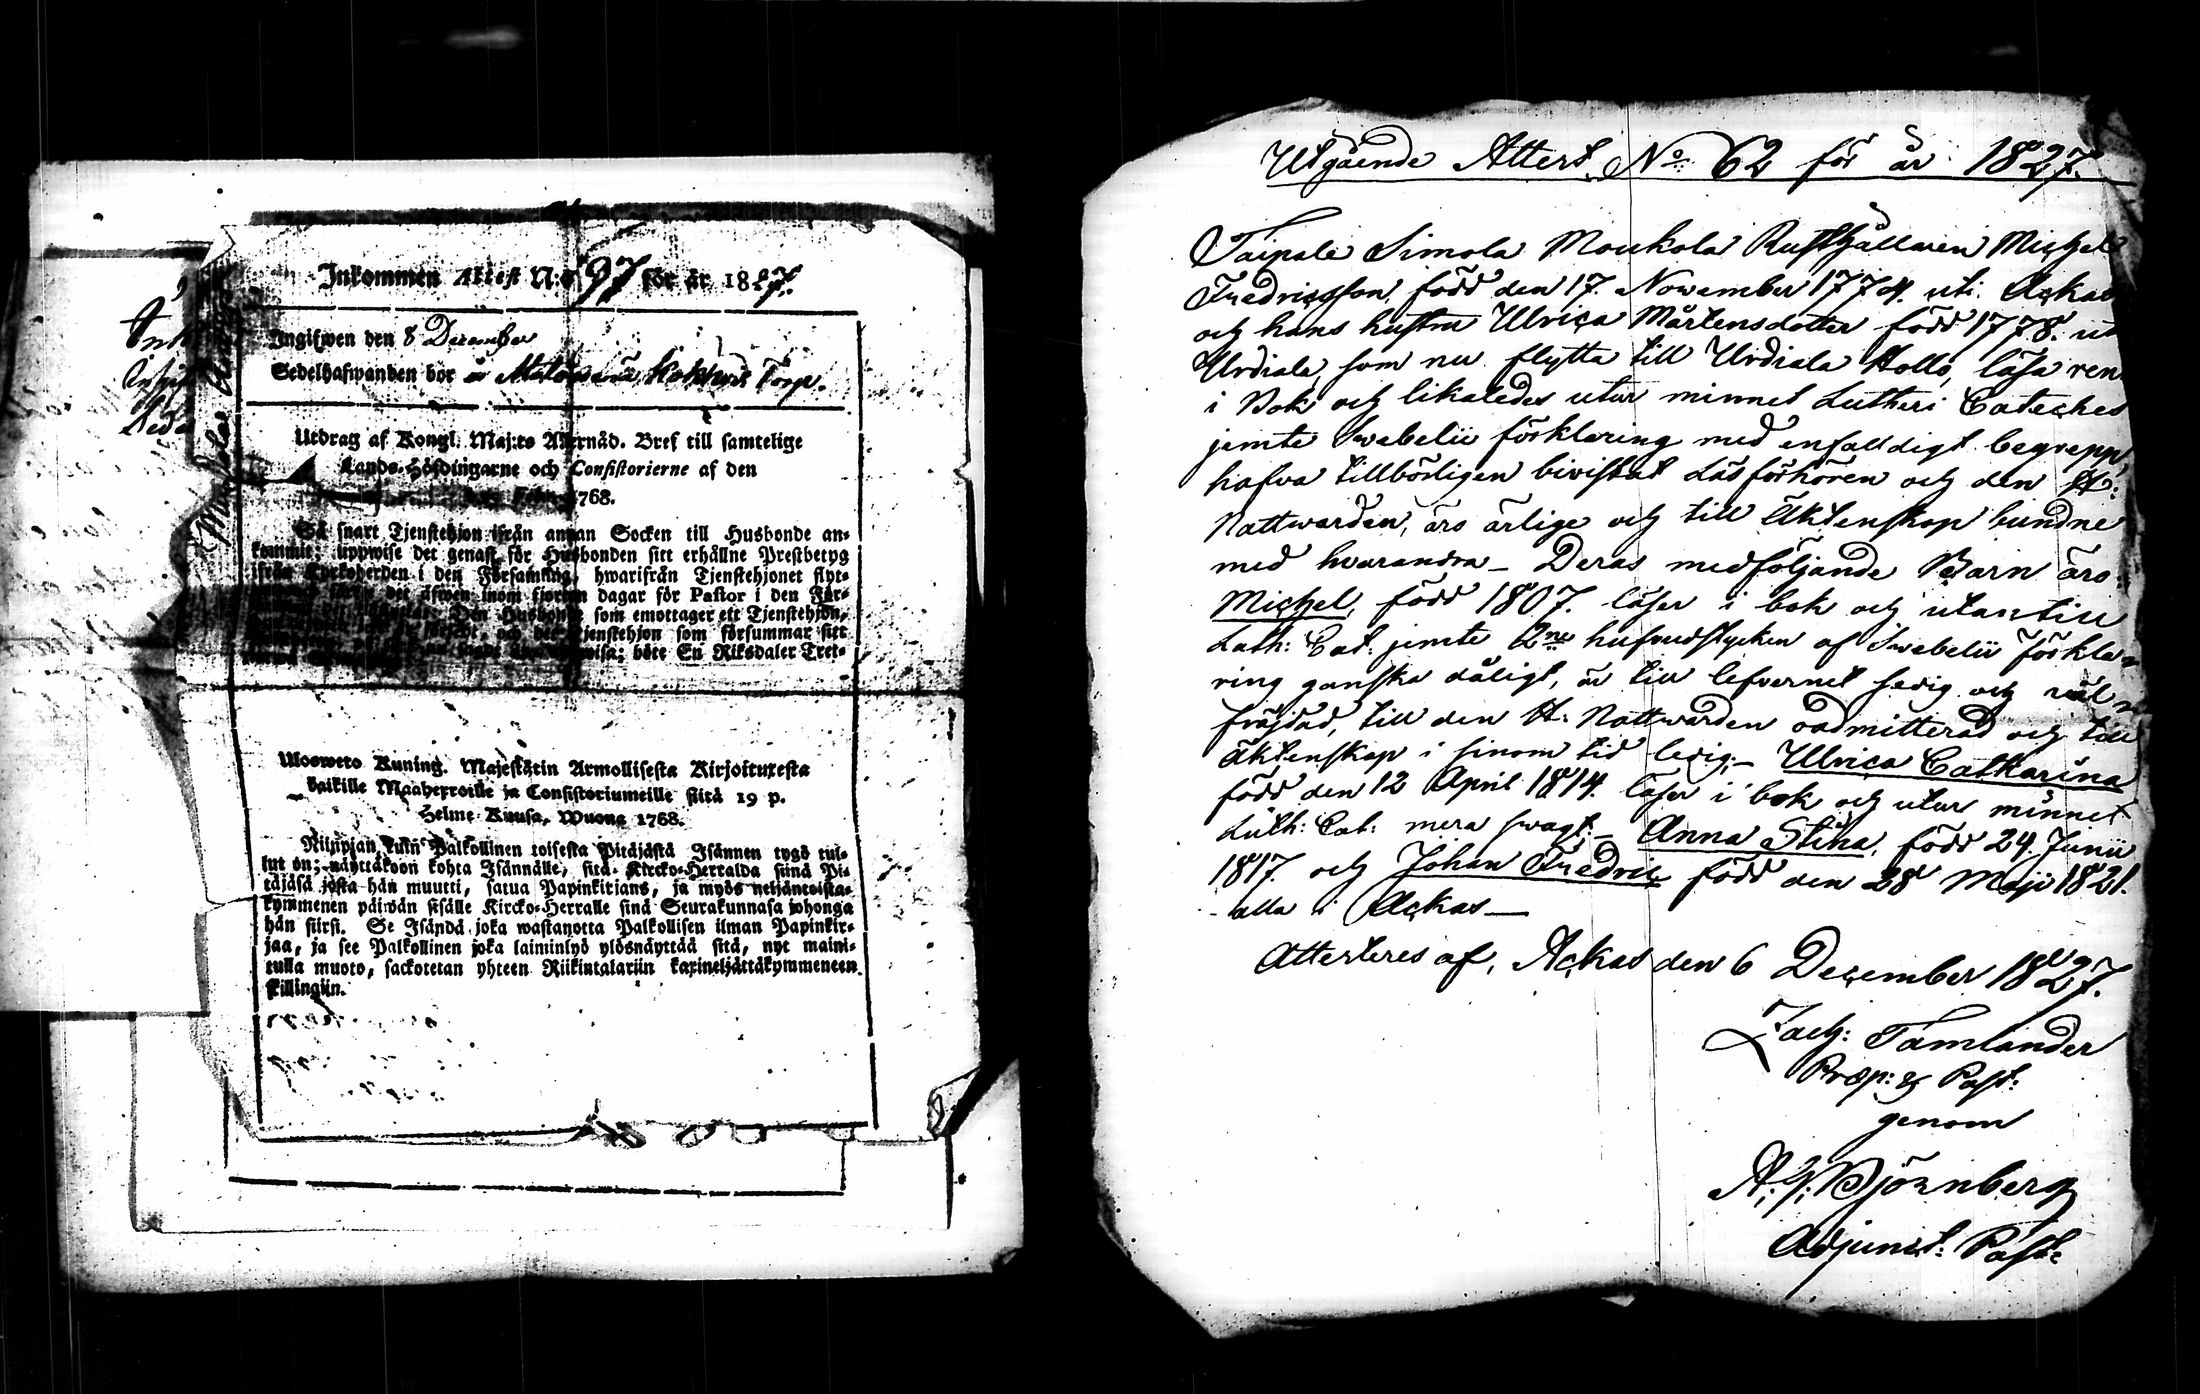 Inkommen Attest N:o 97 för år 1827.
Ingifwen den 8 December
Sedelhafwanden bor å Torp.
Utdrag af Kongl. Maj:ts Allernåd. Bref till samtelige
Lands-Höfdingarne och Consistorierne af den
1768.
Så snart Tjenstehjon ifrån annan Socken till Husbonde an-
kommit; uppwise det genast för Husbonden sitt erhållne Prestbetyg
ifrån Kyrkoherden i den Församling, hwarifrån Tjenstehjonet flyt-
det äfwen inom fjorton dagar för Pastor i den För-
Den Husbonde som emottager ett Tjenstehjon,
och det Tjenstehjon som försummar sitt
wisa; böte En Riksdaler Tret-
Ulosweto Kuning. Majestätin Armollisesta Kirjoituxesta
kaikille Maaherroille ja Consistoriumeille siitä 19 p.
Helme-Kuusa, Wuona 1768.
Niinpian kuin Palkollinen toisesta Pitäjästä Isännen tygö tul-
lut on; näyttäkoon kohta Isännälle, sitä Kircko-Herralda siinä Pi-
täjäsä josta hän muutti, saatua Papinkirjans, ja myös neljäntoista-
kymmenen päiwän sisälle Kircko-Herralle siná Seurakunnasa johonga
hän siirsi. Se Isändä joka wastanotta Palkollisen ilman Papinkir-
jaa, ja see Palkollinen joka laiminlyö ylösnäyttää sitä, nyt maini-
tulla muoto, sackotetan yhteen Riikintalariin kaxineljättäkymmeneen
killingiin.
Utgående Attest No 62 för år 1827.
Taipale Simola Moukola Rusthållaren Michel
Fredricsson, född den 17. November 1774. uti Ackas
och hans hustru Ulrica Mårtensdotter född 1778. ut
Urdiala, som nu flytta till Urdiala Hollo, läsa ren
i Bok och likaledes utur minnet Lutheri Cateches
jemte Swebelii förklaring med enfaldigt begrepp,
hafva tillbörligen biwistat Läsförhören och den H:
Nattwarden, äro ärlige och till Äktenskap bundne
med hvarandra – Deras medföljande Barn äro:
Michel, född 1807. läser i bok och utantill
Luth: Cat: jemte 2ne hufvudstycken af Swebelii förkla-
ring ganska dåligt, är till lefvernet sedig och väl-
fräjdad, till den H: Nattwarden oadmitterad och till
Äktenskap i sinom tid ledig; – Ulrica Catharina
född den 12 April 1814. läser i bok och utur minnet
Luth: Cat: mera swagt. – Anna Stina, född 24. Junii
1817. och Johan Fredric född den 28 Maji 1821.
alla i Ackas –
Attesteres af, Ackas den 6 December 1827.
Zach: Tamlander
Præp: & Past:
genom
A: J: Björnberg
Adjunct: Past: